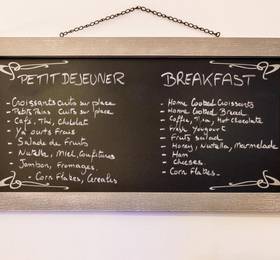 PETIT DEJEUNER
- Croissants Cuits sur place
- Petits Pains Cuits sur place
- Café, Thé, Chocolat
- Ya'ourts Frais
- Salade de Fruits
- Nutella, Miel, Confitures
- Jambon, Fromages
- Corn Flakes, Cereales
BREAKFAST
- Home Cooked Croissants
- Home Cooked Bread
- Coffee, Tea, Hot Chocolate
- Fresh Yougourt
- Fruits Salad
- Honey, Nutella, Marmelade
- Ham
- Cheeses
- Corn Flakes